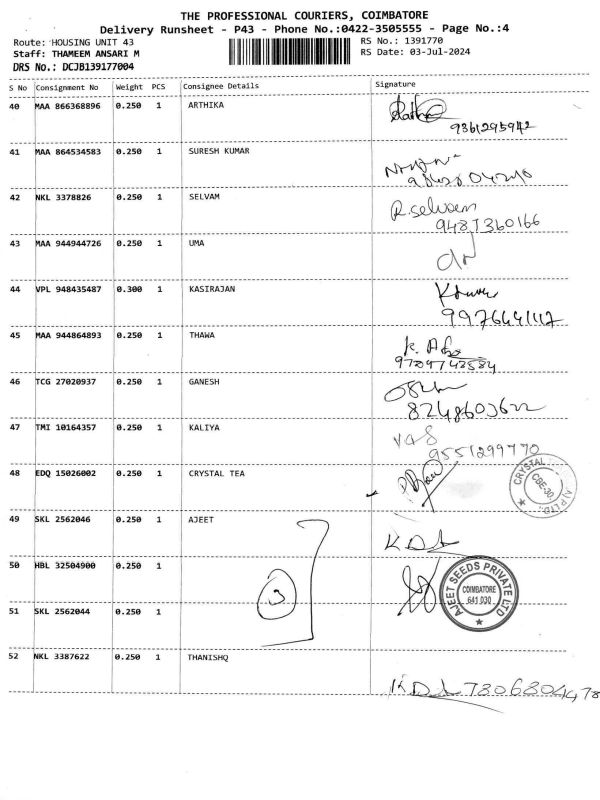 THE PROFESSIONAL COURIERS, COIMBATORE
Delivery Runsheet - P43 - Phone No.:0422-3505555 - Page No.:4
Route: HOUSING UNIT 43 RS No.: 1391770
Staff: THAMEEM ANSARI M RS Date: 03-Jul-2024
DRS No.: DCJB139177004
S No Consignment No Weight PCS Consignee Details Signature
40 MAA 866368896 0.250 1 ARTHIKA
9361295942
41 MAA 864534583 0.250 1 SURESH KUMAR
42 NKL 3378826 0.250 1 SELVAM R.selvam
9487360166
43 MAA 944944726 0.250 1 UMA
44 VPL 948435487 0.300 1 KASIRAJAN
45 MAA 944864893 0.250 1 THAWA
46 TCG 27020937 0.250 1 GANESH
8248603622
47 TMI 10164357 0.250 1 KALIYA
9551299770
48 EDQ 15026002 0.250 1 CRYSTAL TEA CRYSTAL CBE-30.
49 SKL 2562046 0.250 1 AJEET
50 HBL 32504900 0.250 1 3 AJEET SEEDS PRIVATE LTD COIMBATORE 641 030
51 SKL 2562044 0.250 1
52 NKL 3387622 0.250 1 THANISHQ
7806804478